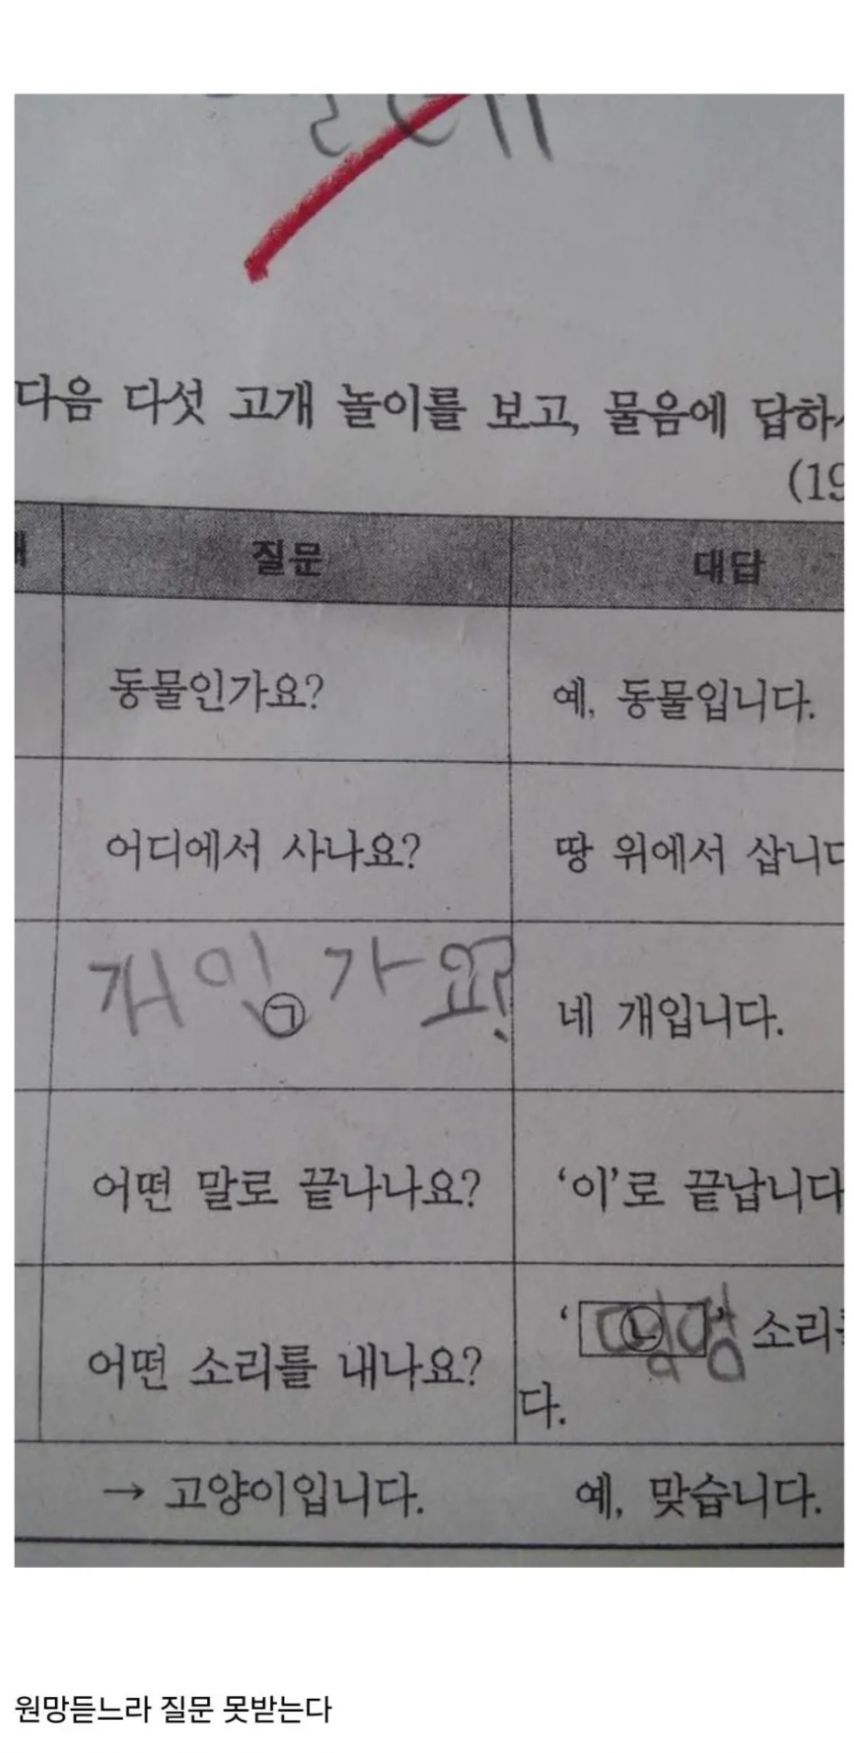 다음 다섯 고개 놀이를 보고, 물음에 답하
(19
질문 대답
동물인가요? 예, 동물입니다.
어디에서 사나요? 땅 위에서 삽니다
개인가요? ㉠ 네 개입니다.
어떤 말로 끝나나요? '이'로 끝납니다
어떤 소리를 내나요? '㉡' 소리
다.
→ 고양이입니다. 예, 맞습니다.
원망듣느라 질문 못받는다